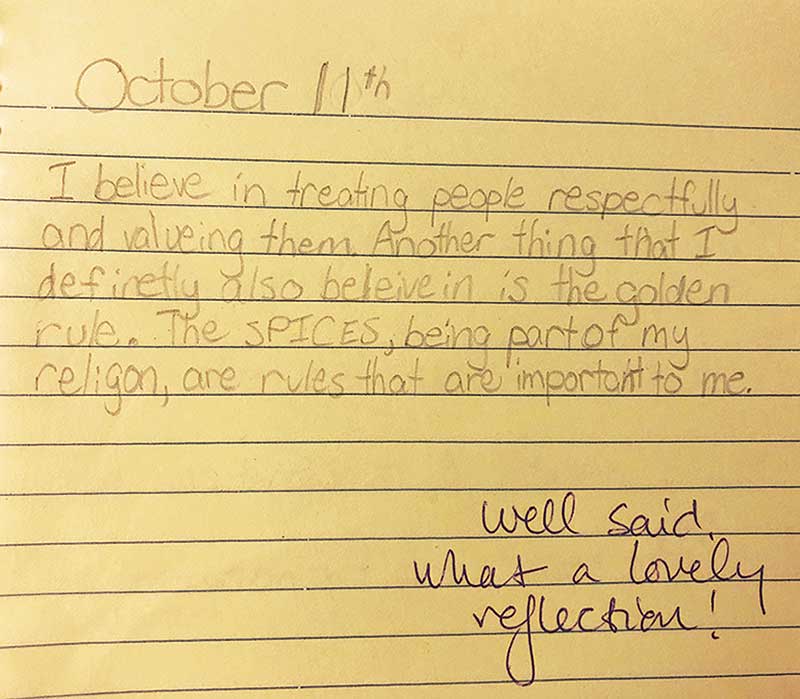 October 11th
I believe in treating people respectfully
and valueing them. Another thing that I
definetly also beleive in is the golden
rule. The SPICES, being part of my
religon, are rules that are important to me.
well said.
what a lovely
reflection!